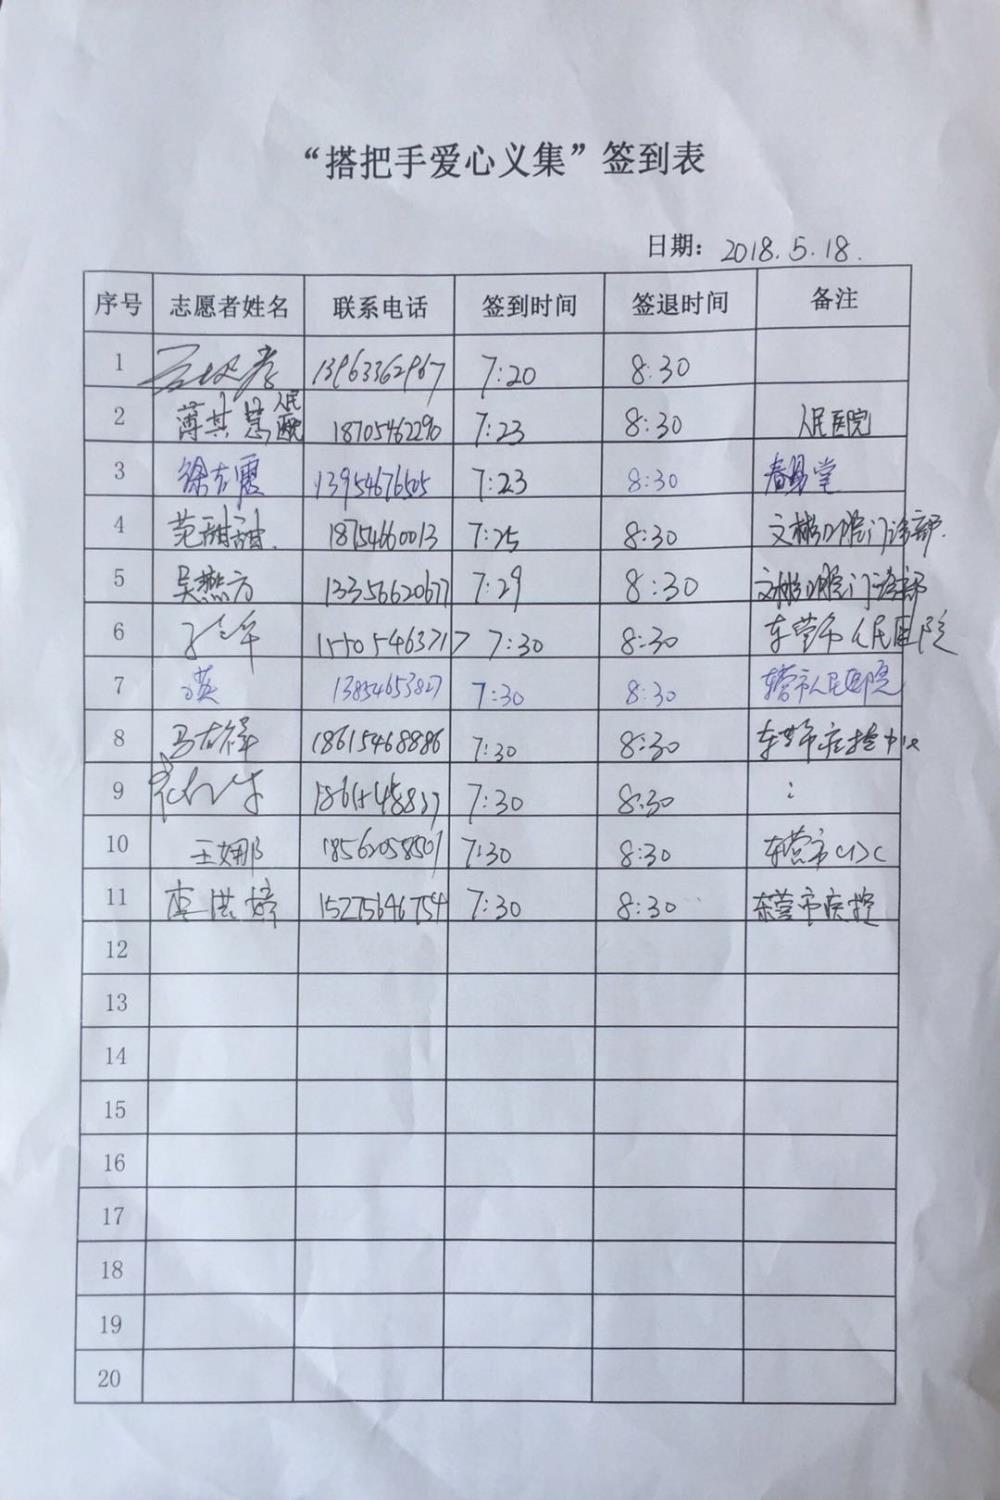 “搭把手爱心义集”签到表
日期：2018.5.18.
序号 志愿者姓名 联系电话 签到时间 签退时间 备注
1 13963362967 7:20 8:30
2 薄其慧 人民医院 18705462290 7:23 8:30 人民医院
3 徐左霞 13954676505 7:23 8:30 春易堂
4 范甜甜. 18754660013 7:25 8:30 文彬口腔门诊部.
5 吴燕方 13356620677 7:29 8:30 文彬口腔门诊部
6 15505463717 7:30 8:30 东营市人民医院
7 13854653827 7:30 8:30 东营市人民医院
8 18615468886 7:30 8:30 东营市疾控中心
9 7:30 8:30
10 王娜 18562058501 7:30 8:30 东营市CDC
11 李洪婷 15275646754 7:30 8:30 东营市疾控
12
13
14
15
16
17
18
19
20